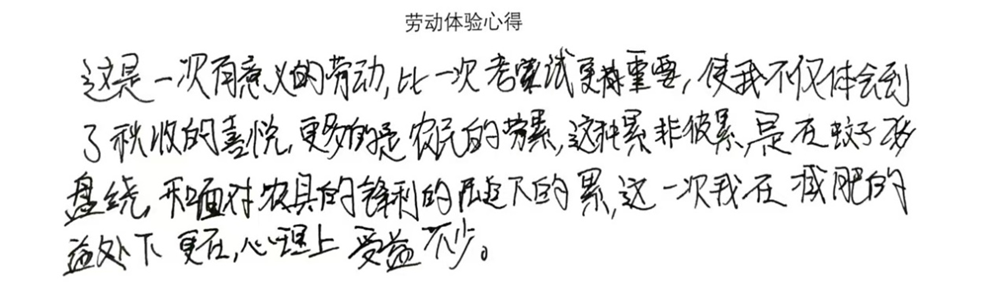 劳动体验心得
这是一次有意义的劳动,比一次考试更将重要,使我不仅体会到
了秋收的喜悦,更多的是农民的劳累,这种累非彼累,是在蚊子
盘绕,和面对农具的锋利的压迫下的累,这一次我在减肥的
益处下更在,心理上受益不少。